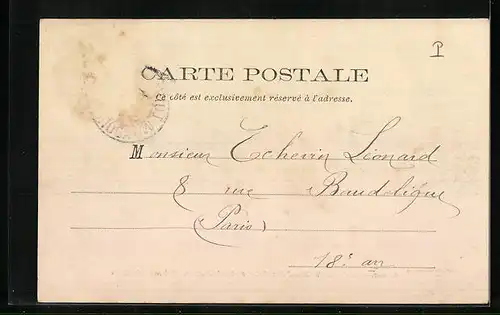 P
CARTE POSTALE
Ce côté est exclusivement réservé à l'adresse.
Monsieur Echevin Léonard
8 rue Baudelique
(Paris)
18e arr